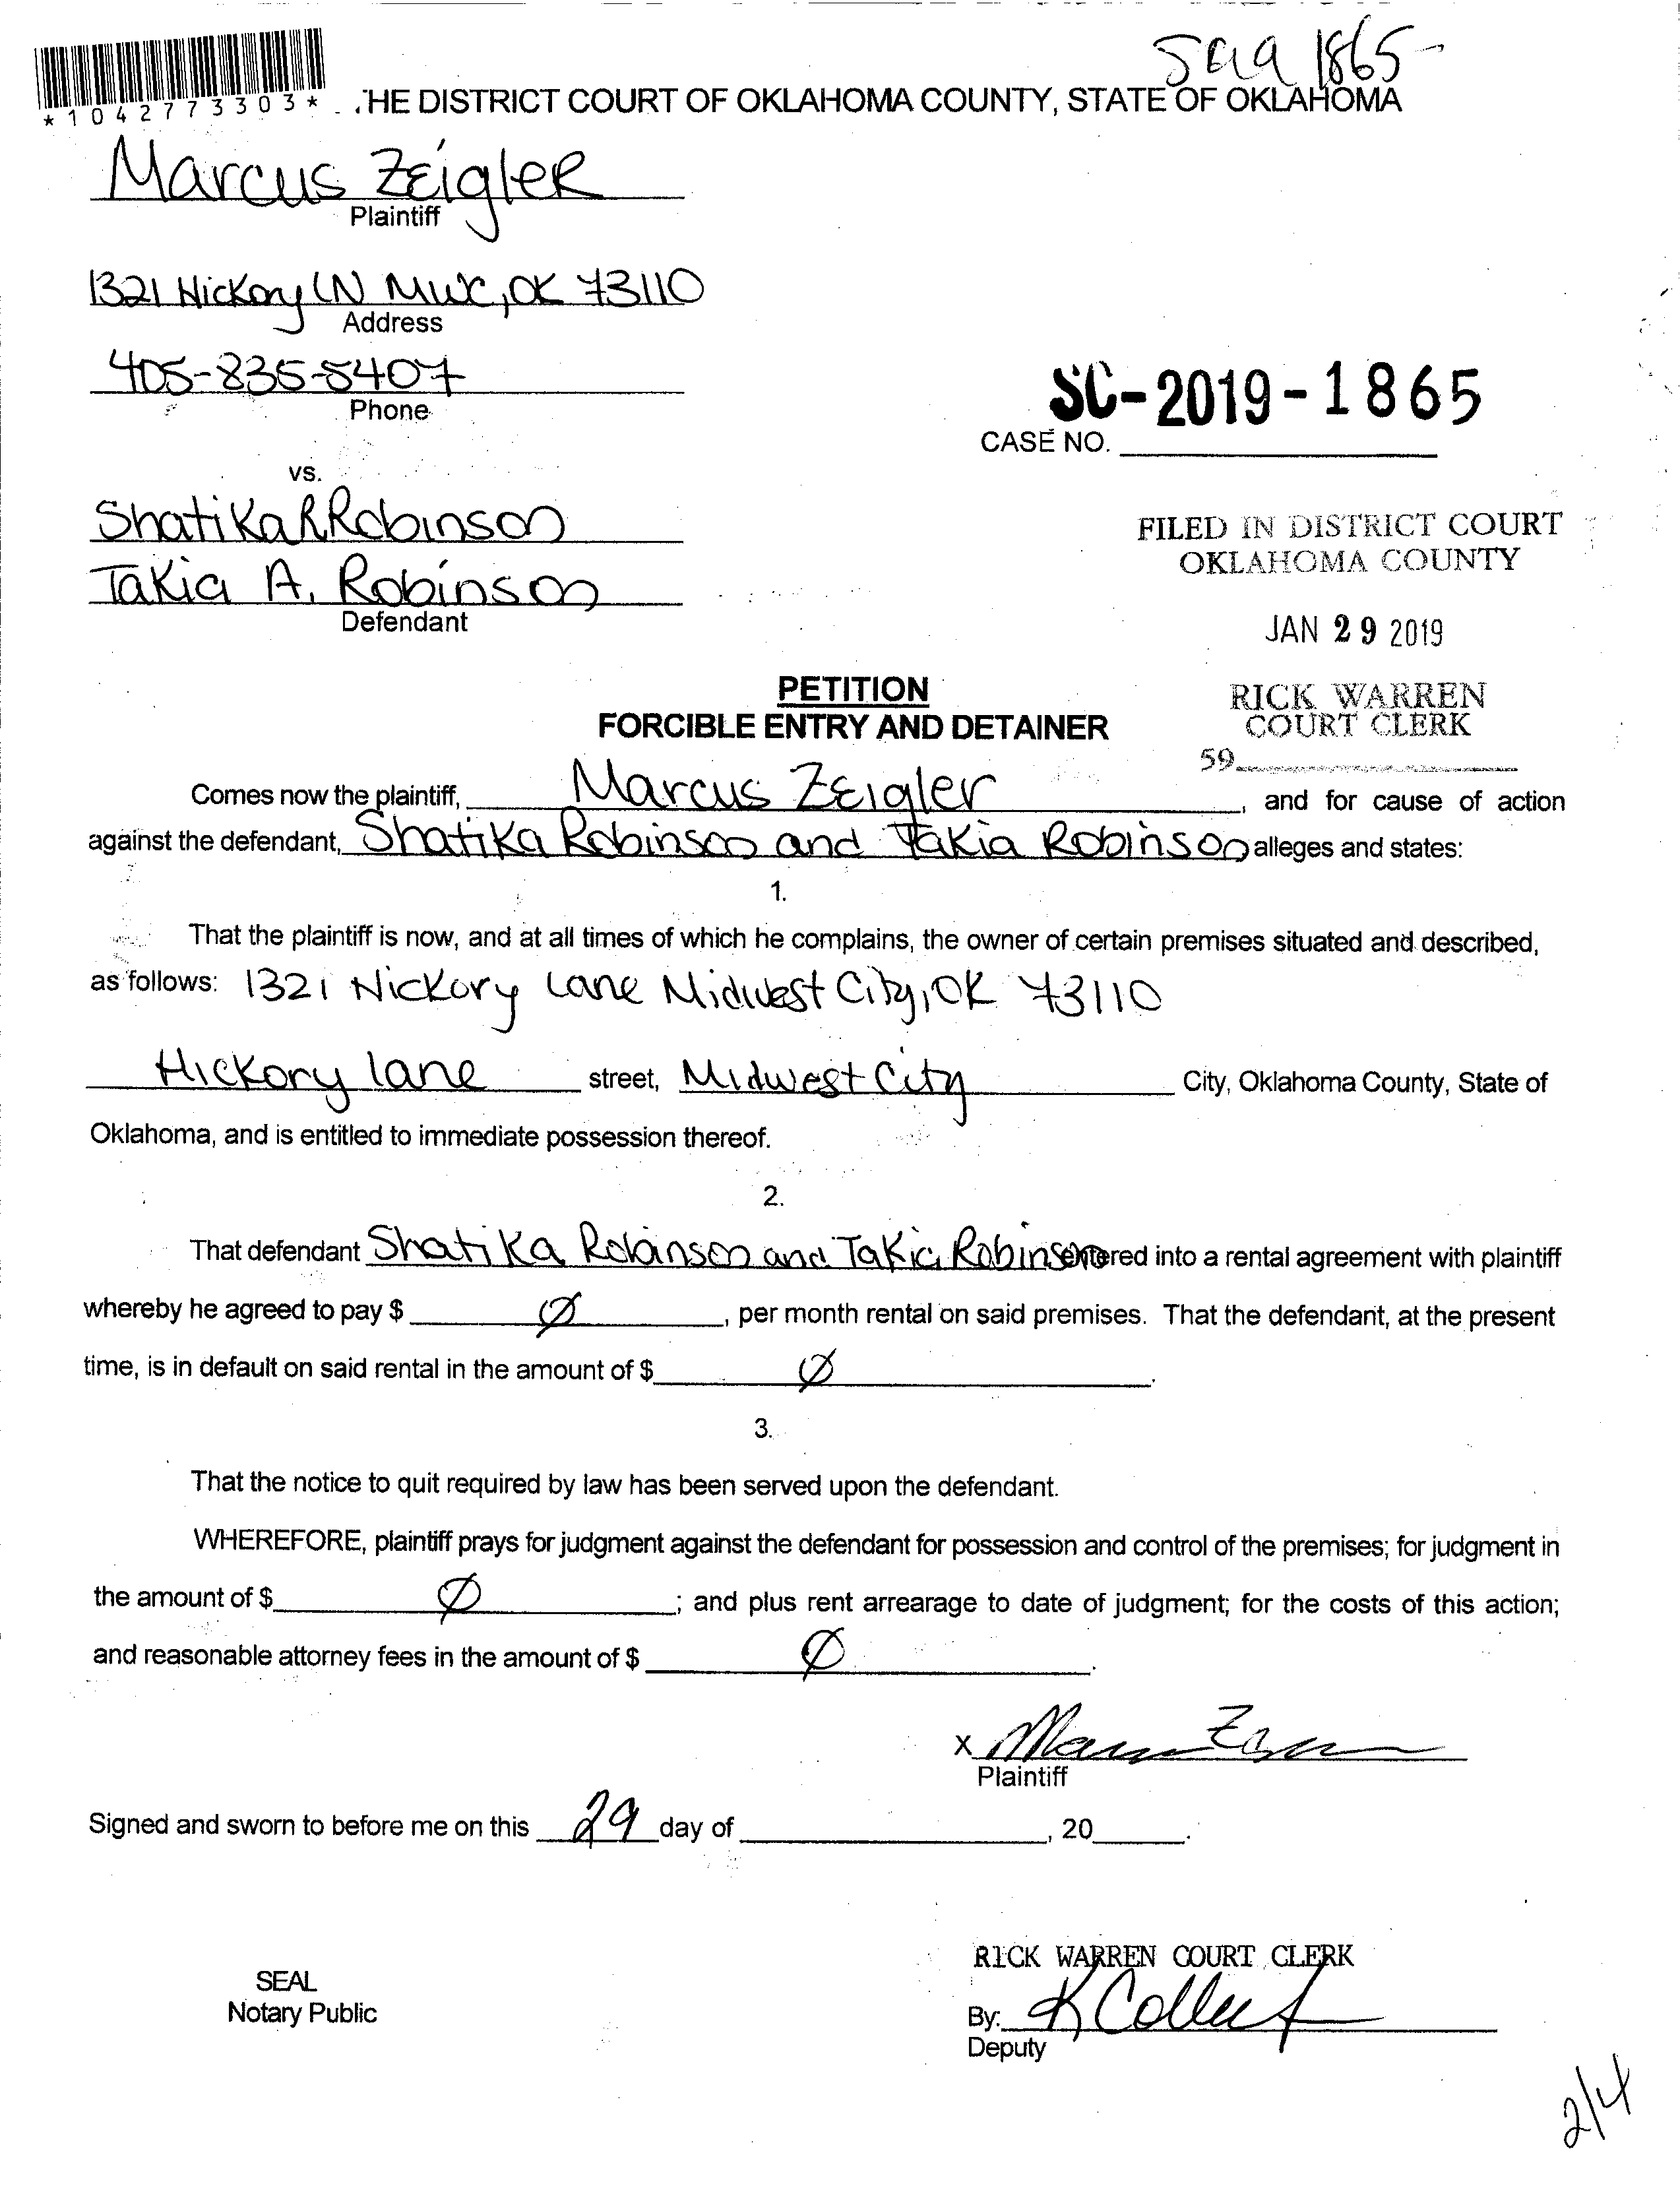 Saa 1865-
*1042773303* .HE DISTRICT COURT OF OKLAHOMA COUNTY, STATE OF OKLAHOMA
Marcus Zeigler
Plaintiff
1321 Hickory LN MWC, OK 73110
Address
405-835-5407
Phone
SC-2019-1865
CASE NO.
vs.
Shatika R Robinson
Takia A. Robinson
Defendant
FILED IN DISTRICT COURT
OKLAHOMA COUNTY
JAN 29 2019
RICK WARREN
COURT CLERK
59
PETITION
FORCIBLE ENTRY AND DETAINER
Comes now the plaintiff, Marcus Zeigler, and for cause of action
against the defendant, Shatika Robinson and Takia Robinson alleges and states:
1.
That the plaintiff is now, and at all times of which he complains, the owner of certain premises situated and described,
as follows: 1321 Hickory Lane Midwest City, OK 73110
Hickory lane street, Midwest City City, Oklahoma County, State of
Oklahoma, and is entitled to immediate possession thereof.
2.
That defendant Shatika Robinson and Takia Robinson entered into a rental agreement with plaintiff
whereby he agreed to pay $ Ø, per month rental on said premises. That the defendant, at the present
time, is in default on said rental in the amount of $ Ø.
3.
That the notice to quit required by law has been served upon the defendant.
WHEREFORE, plaintiff prays for judgment against the defendant for possession and control of the premises; for judgment in
the amount of $ Ø; and plus rent arrearage to date of judgment; for the costs of this action;
and reasonable attorney fees in the amount of $ Ø.
X
Plaintiff
Signed and sworn to before me on this 29 day of , 20 .
SEAL
Notary Public
RICK WARREN COURT CLERK
By:
Deputy
2/4